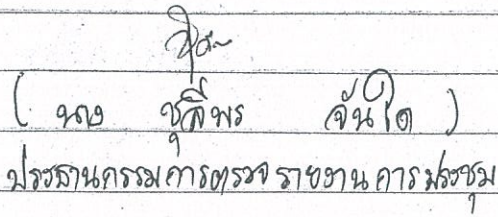 ( นาง ชุลีพร จันใด )
ประธานกรรมการตรวจรายงานการประชุม